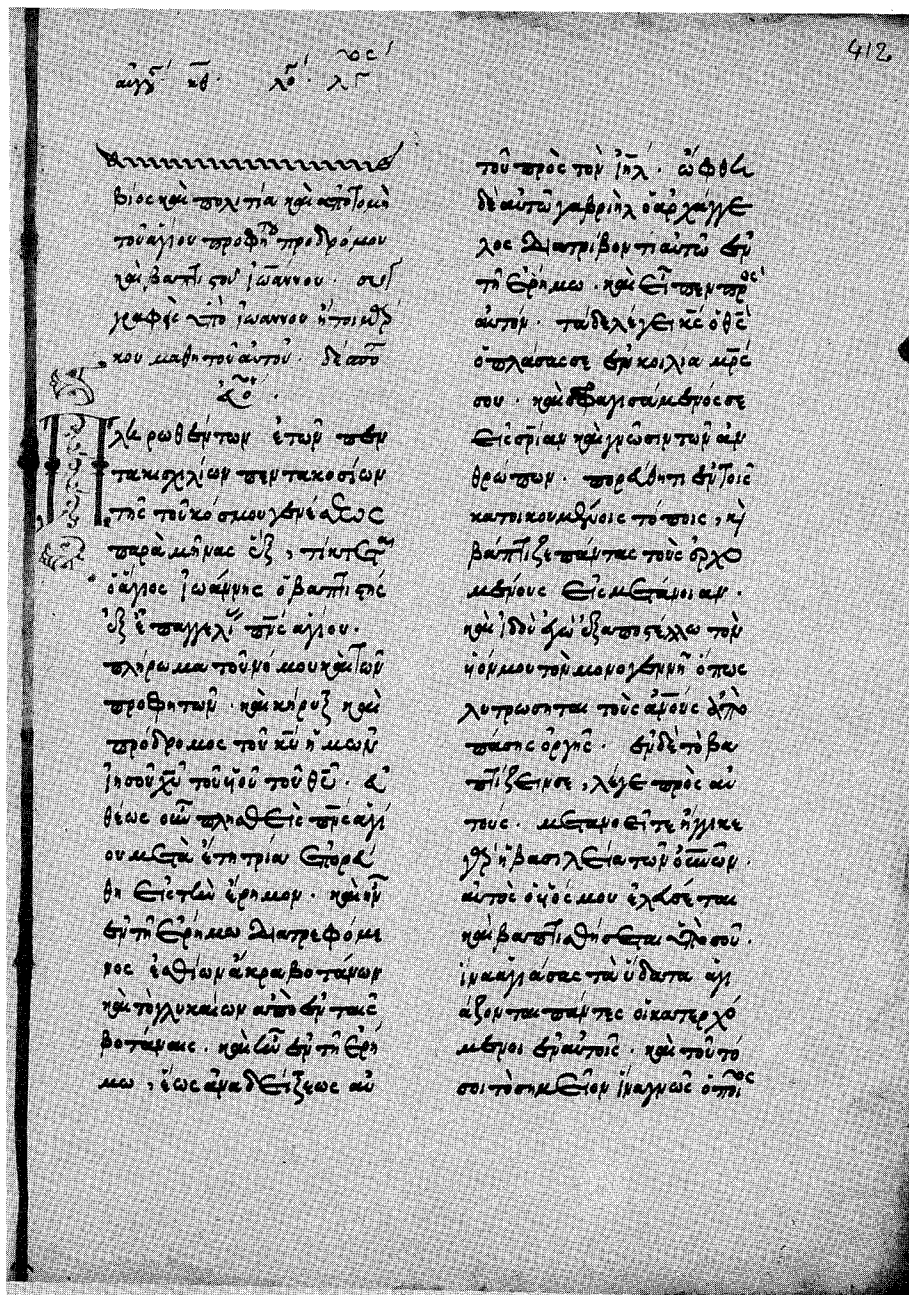 412
αυγ´ κθ. λο´. λγ´
βίος καὶ πολιτία καὶ ἀποτομὴ
τοῦ ἁγίου προφή του προδρόμου
καὶ βαπτιστοῦ ἰωάννου. συγ
γραφὲν ὑπὸ ἰωάννου
κου μαθητοῦ αὐτοῦ.
Πληρωθέντων ἐτῶν πεν
τακισχιλίων πεντακοσίων
τῆς τοῦ κόσμου γενέσεως
παρὰ μῆνας ἓξ, τίκτεται
ὁ ἅγιος ἰωάννης ὁ βαπτιστής
ἐξ ἐπαγγελίας πνς ἁγίου.
πλήρωμα τοῦ νόμου καὶ τῶν
προφητῶν. καὶ κήρυξ καὶ
πρόδρομος τοῦ κυ ἡμῶν
ἰησοῦ χυ τοῦ υἱοῦ τοῦ θυ. εὐ
θέως οὖν πλησθεὶς πνς ἁγί
ου μετὰ ἔτη τρία ἐπορεύ
θη εἰς τὴν ἔρημον. καὶ ἦν
ἐν τῇ ἐρήμω διατρεφόμε
νος ἐσθίων ἀκραβοτάνων
καὶ τὸ γλυκαίων ἀπὸ ἐν ταῖς
βοτάναις. καὶ ἦν ἐν τῇ ἐρή
μω, ἕως ἀναδείξεως αὐ
τοῦ πρὸς τὸν ιηλ. ὤφθει
δὲ αὐτῶ γαβριὴλ ὁ ἀρχάγγε
λος διατρίβοντι αὐτῶ ἐν
τῇ ἐρήμω. καὶ εἶπεν πρὸς
αὐτόν. τάδε λέγει κς ὁ θς
ὁ πλάσας σε ἐν κοιλία μρς
σου. καὶ σφραγισάμενός σε
εἰς σριαν καὶ γνῶσιν τῶν ἀν
θρώπων. πορεύθητι ἐν τοῖς
κατοικουμένοις τόποις, καὶ
βάπτιζε πάντας τοὺς ἐρχο
μένους εἰς μετάνοιαν.
καὶ ἰδοὺ ἐγὼ ἐξαποστέλλω τὸν
υἱόν μου τὸν μονογεννῆ ὅπως
λυτρώσηται τοὺς ανους ἀπὸ
πάσης ὀργῆς. ἐν δὲ τὸ βα
πτίζειν σε, λέγε πρὸς αὐ
τούς. μετανοεῖτε ἤγγικε
γὰρ ἡ βασιλεία τῶν ουνων.
αὐτὸς ὁ υἱός μου ἐλεύσεται
καὶ βαπτισθήσεται ὑπὸ σοῦ.
ἵνα ἁγιάσας τὰ ὕδατα ἁγι
άζονται πάντες οἱ κατερχό
μενοι ἐν αὐτοῖς. καὶ τοῦτό
σοι τὸ σημεῖον ἵνα γνῶς ὁποῖος